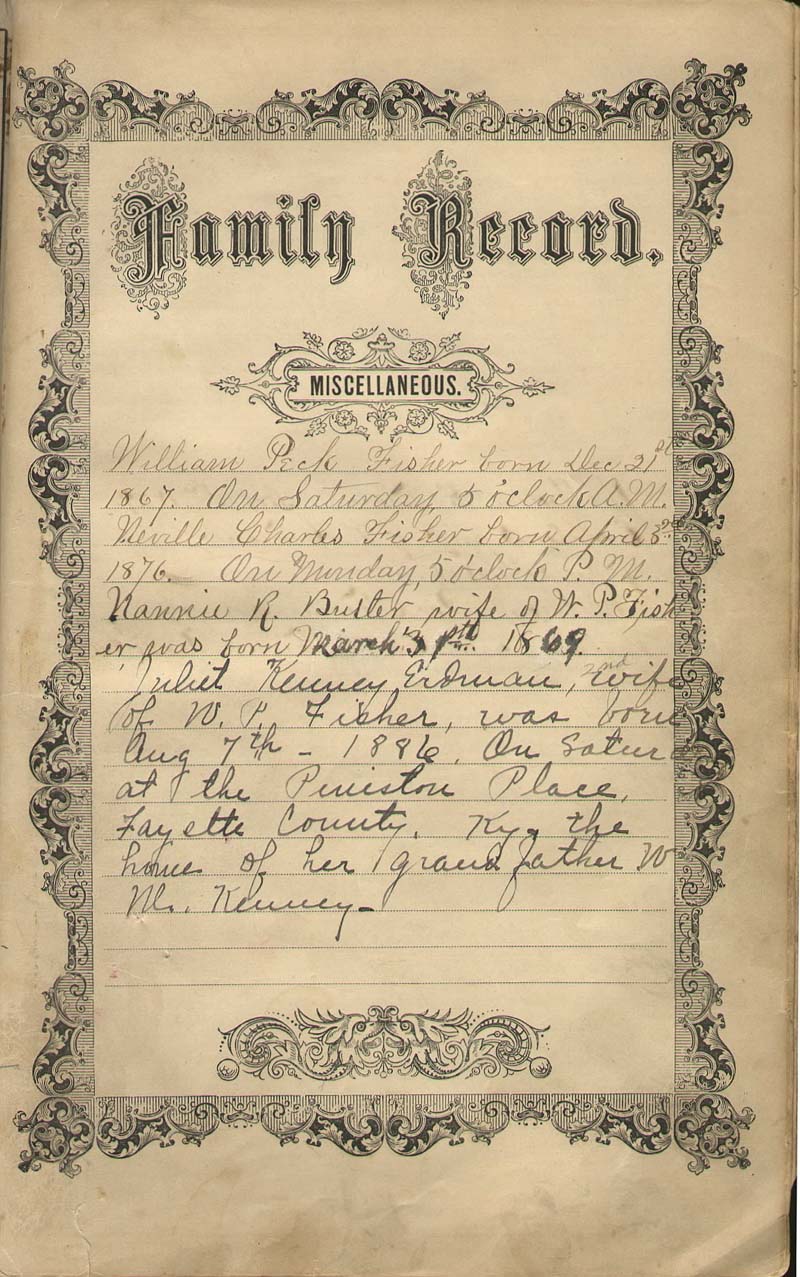 Family Record.
MISCELLANEOUS.
William Peck Fisher born Dec 21st
1867. On Saturday, 5 o'clock A.M.
Neville Charles Fisher born April 3rd
1876. On Monday, 5 o'clock P. M.
Nannie R. Buster, wife of W. P. Fish
er was born March 1869.
Juliet Kenney Erdman, 2nd wife
of W. P. Fisher, was born
Aug 7th - 1886. On Satur
at the Peniston Place,
Fayette County, Ky. the
home of her grand father W
M. Kenney-